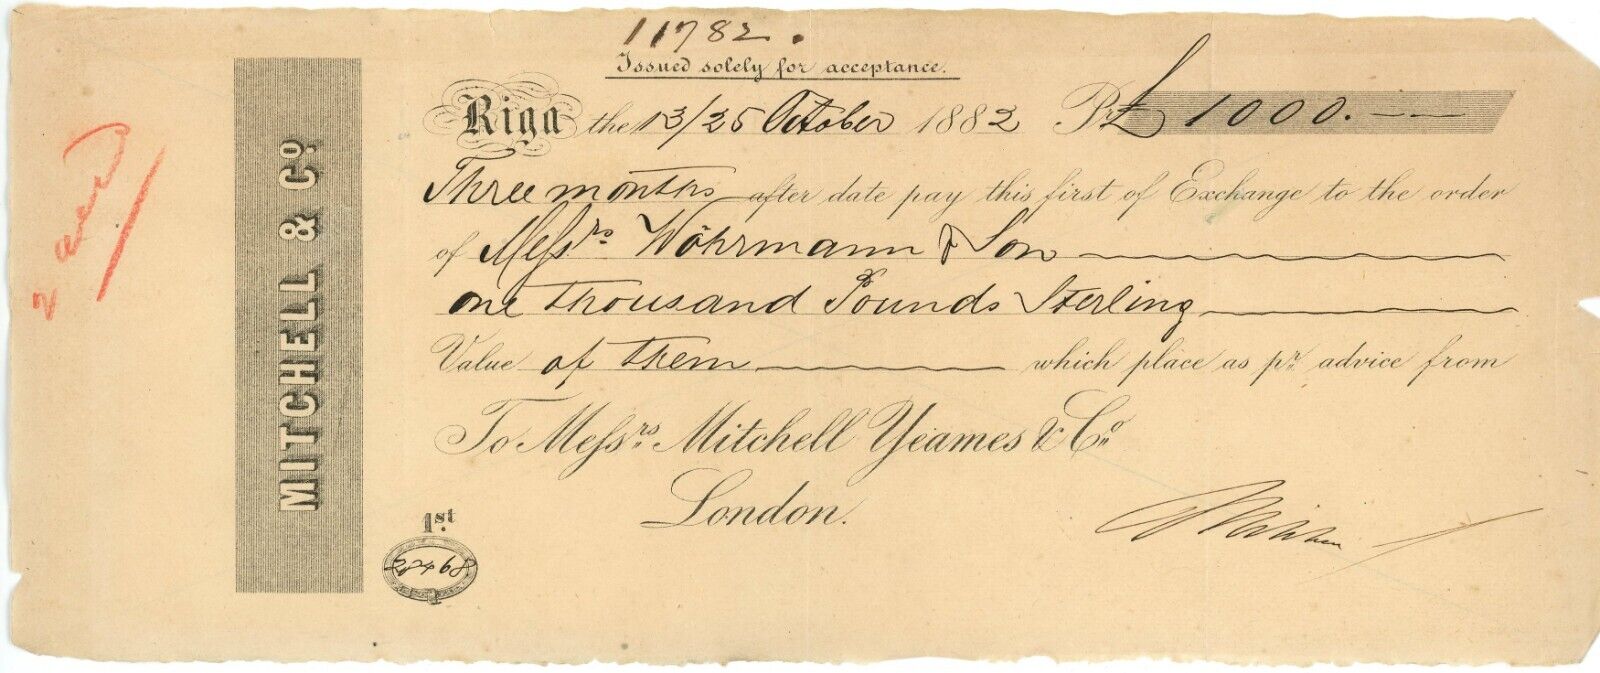 11782.
Issued solely for acceptance.
Riga the 13/25 October 1882 Pr £ 1000.--
Three months after date pay this first of Exchange to the order
of Messrs Wöhrmann & Son
one thousand Pounds Sterling
Value of them which place as pr. advice from
To Messrs. Mitchell Yeames & Co.
London.
MITCHELL & Co.
1st.